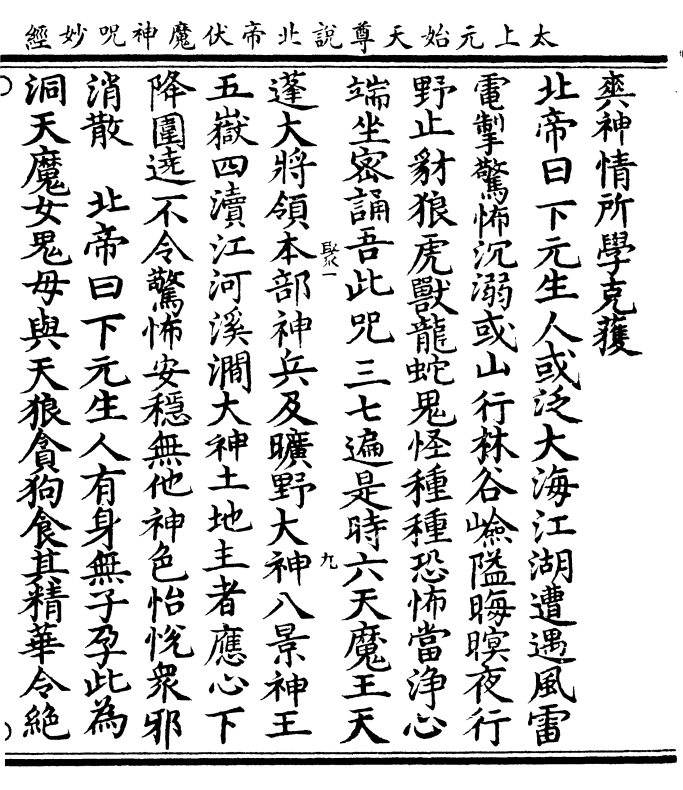 太上元始天尊說北帝伏魔神呪妙經
爽神情所學克獲
北帝曰下元生人或泛大海江湖遭遇風雷
電掣驚怖沉溺或山行林谷嶮隘晦暝夜行
野止豺狼虎獸龍蛇鬼怪種種恐怖當淨心
端坐密誦吾此咒三七遍是時六天魔王天
聚一
九
蓬大將領本部神兵及曠野大神八景神王
五嶽四瀆江河溪澗大神土地主者應心下
降圍遶不令驚怖安穩無他神色怡悅衆邪
消散　北帝曰下元生人有身無子孕此為
洞天魔女鬼母與天狼貪狗食其精華令絕